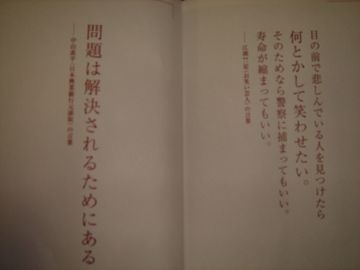 目の前で悲しんでいる人を見つけたら
何とかして笑わせたい。
そのためなら警察に捕まってもいい。
寿命が縮まってもいい。
の言葉
問題は解決されるためにある
の言葉